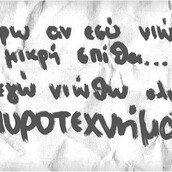 ρω αν εσύ νιώ
μικρή σπίθα...
εγώ νιώθω ολ
υροτεχνήμα